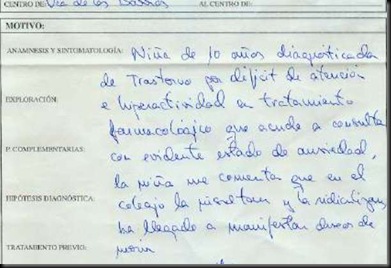 CENTRO DE: Vva de los Barros AL CENTRO DE:
MOTIVO:
ANAMNESIS Y SINTOMATOLOGÍA: Niña de 10 años diagnosticada
de Trastorno por déficit de atención
EXPLORACIÓN: e hiperactividad en tratamiento
farmacológico que acude a consulta
P. COMPLEMENTARIAS: con evidente estado de ansiedad,
la niña me comenta que en el
HIPÓTESIS DIAGNÓSTICA: colegio la insultan y la ridiculizan,
ha llegado a manifestar deseos de
TRATAMIENTO PREVIO: morir